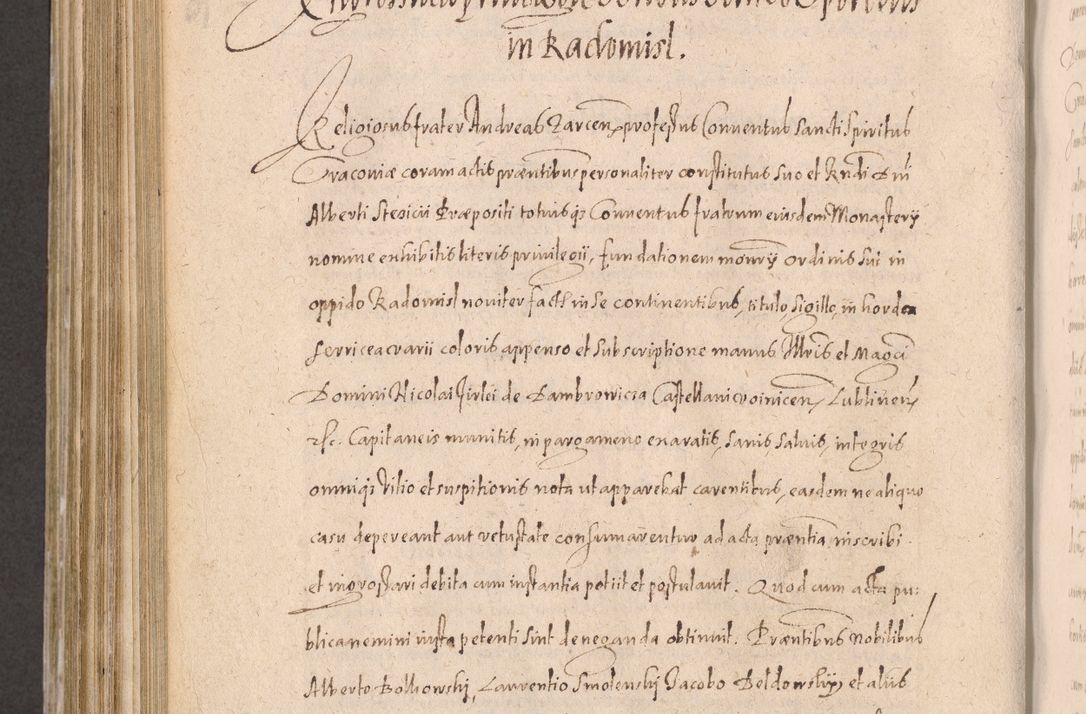 in Radomisl.
Religiosus frater Andreas Zarcen professus Conventus Sancti Spiritus
Cracoviæ coram actis præntibus personaliter constitutus suo et Rndi Dni
Alberti Præpositi totiusq; Conventus fratrum eiusdem Monastery
nomine exhibitis literis privilegii, fundationem monrÿ ordinis sui in
oppido Radomisl noviter fact in se continentibus, titulo, sigillo, in
serricea varii coloris appenso et subscriptione manus Illris et Magci
Domini Nicolai Firlei de Dambrowicza Castellani voinicen, Lublinen,
etc. Capitaneis munitis, in pargameno enaratis, sanis, salvis, integris
omniq; vitio et suspitionis nota ut apparebat carentibus, easdem ne aliquo
casu depereant aut vetustate consumarentur ad acta præntia, inscribi
et ingrossari debita cum instantia petiit et postulavit. Quod cum acta pu:
blica nemini iusta petenti sint deneganda obtinuit. Præntibus nobilibus
Alberto Bolkowskj, Laurentio Smolenskj Jacobo Beldowskÿ et aliis